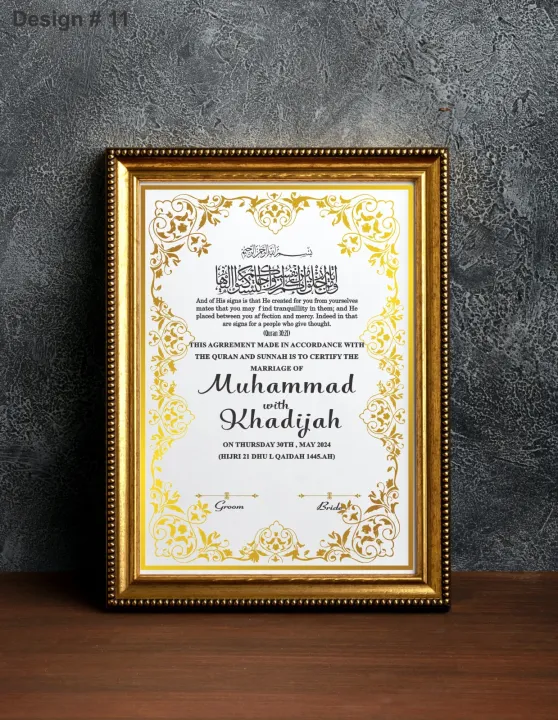 Design # 11
بسم الله الرحمن الرحيم
And of His signs is that He created for you from yourselves
mates that you may f ind tranquillity in them; and He
placed between you af fection and mercy. Indeed in that
are signs for a people who give thought.
(Quran 30:21)
THIS AGRREMENT MADE IN ACCORDANCE WITH
THE QURAN AND SUNNAH IS TO CERTIFY THE
MARRIAGE OF
Muhammad
with
Khadijah
ON THURSDAY 30TH , MAY 2024
(HIJRI 21 DHU L QAIDAH 1445.AH)
Groom Bride